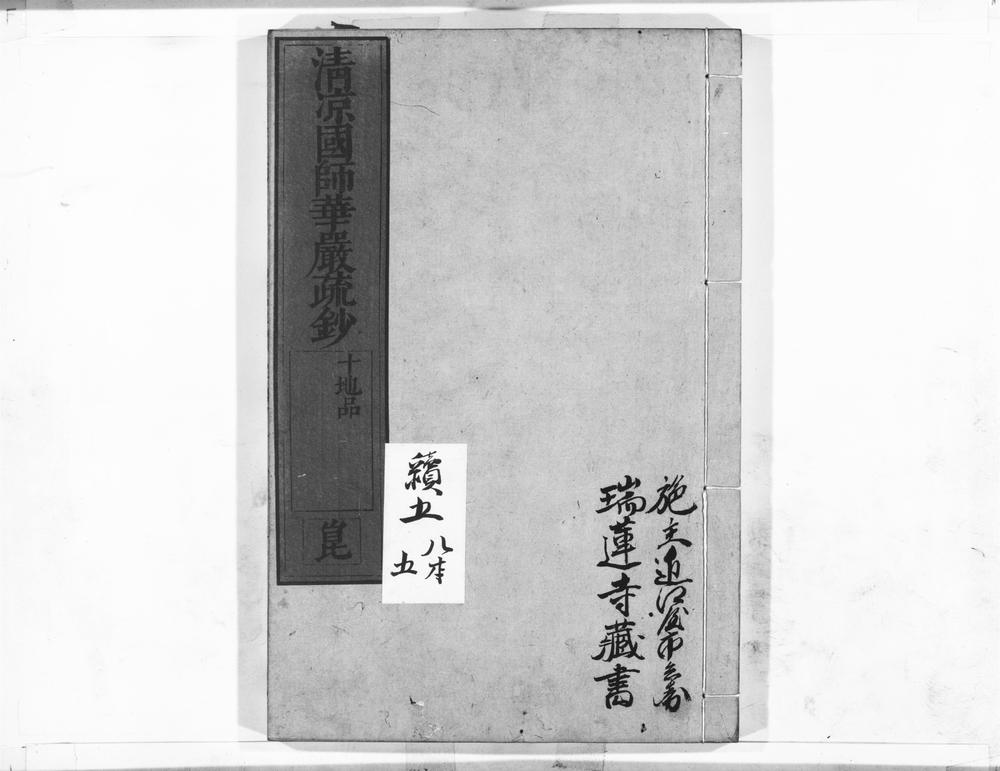 施主近江屋市兵衛
瑞蓮寺藏書
清凉國師華嚴疏鈔
十地品
崑
續五
八本
五